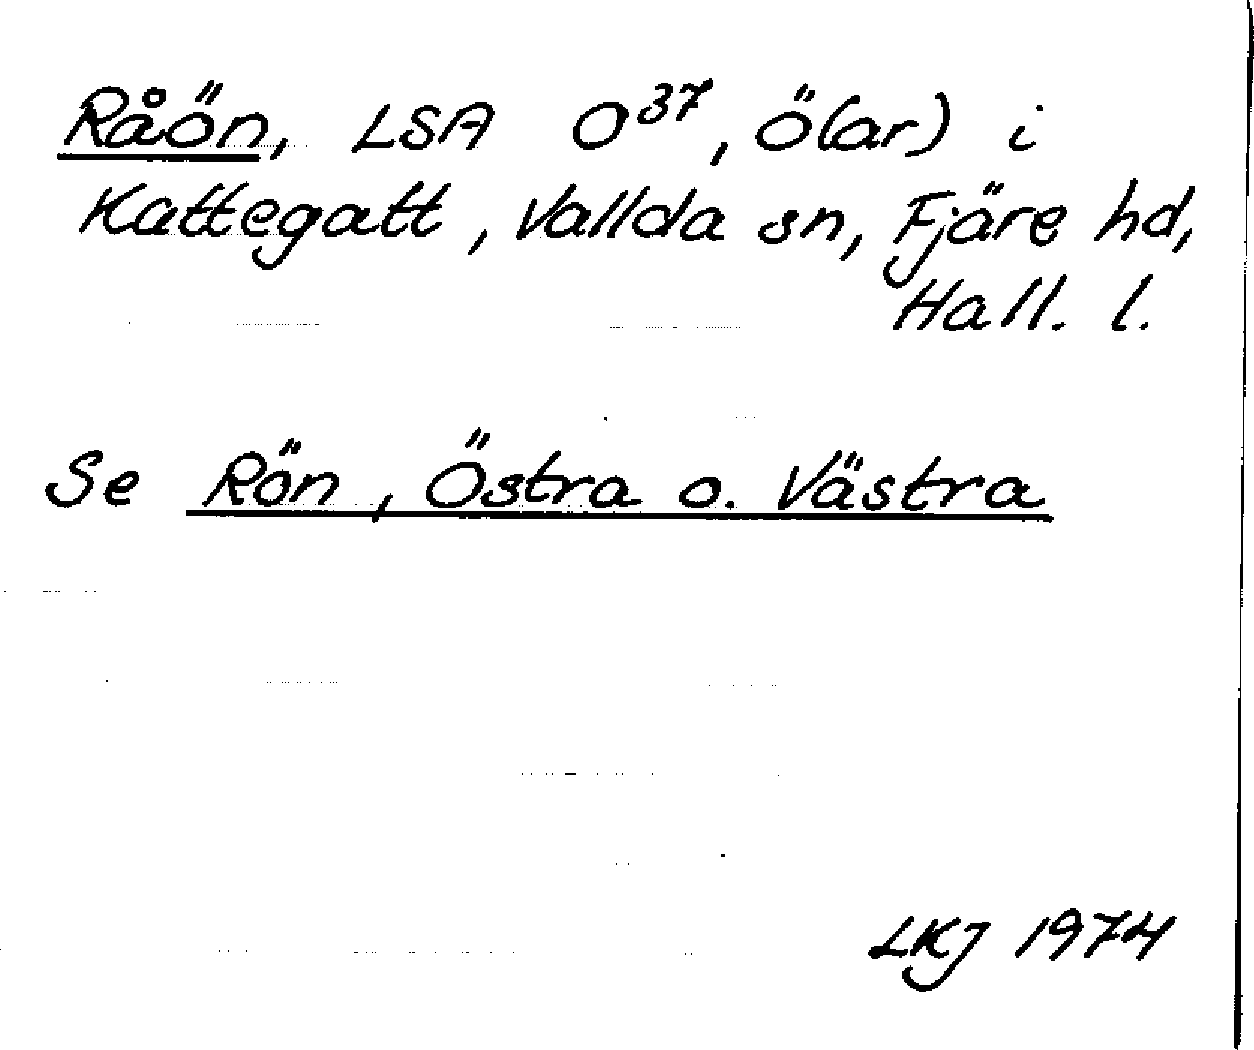 Råön, LSA O37, Ö(ar) i
Kattegatt, Vallda sn, Fjäre hd,
Hall. l.
Se Rön, Östra o. Västra
LKJ 1974